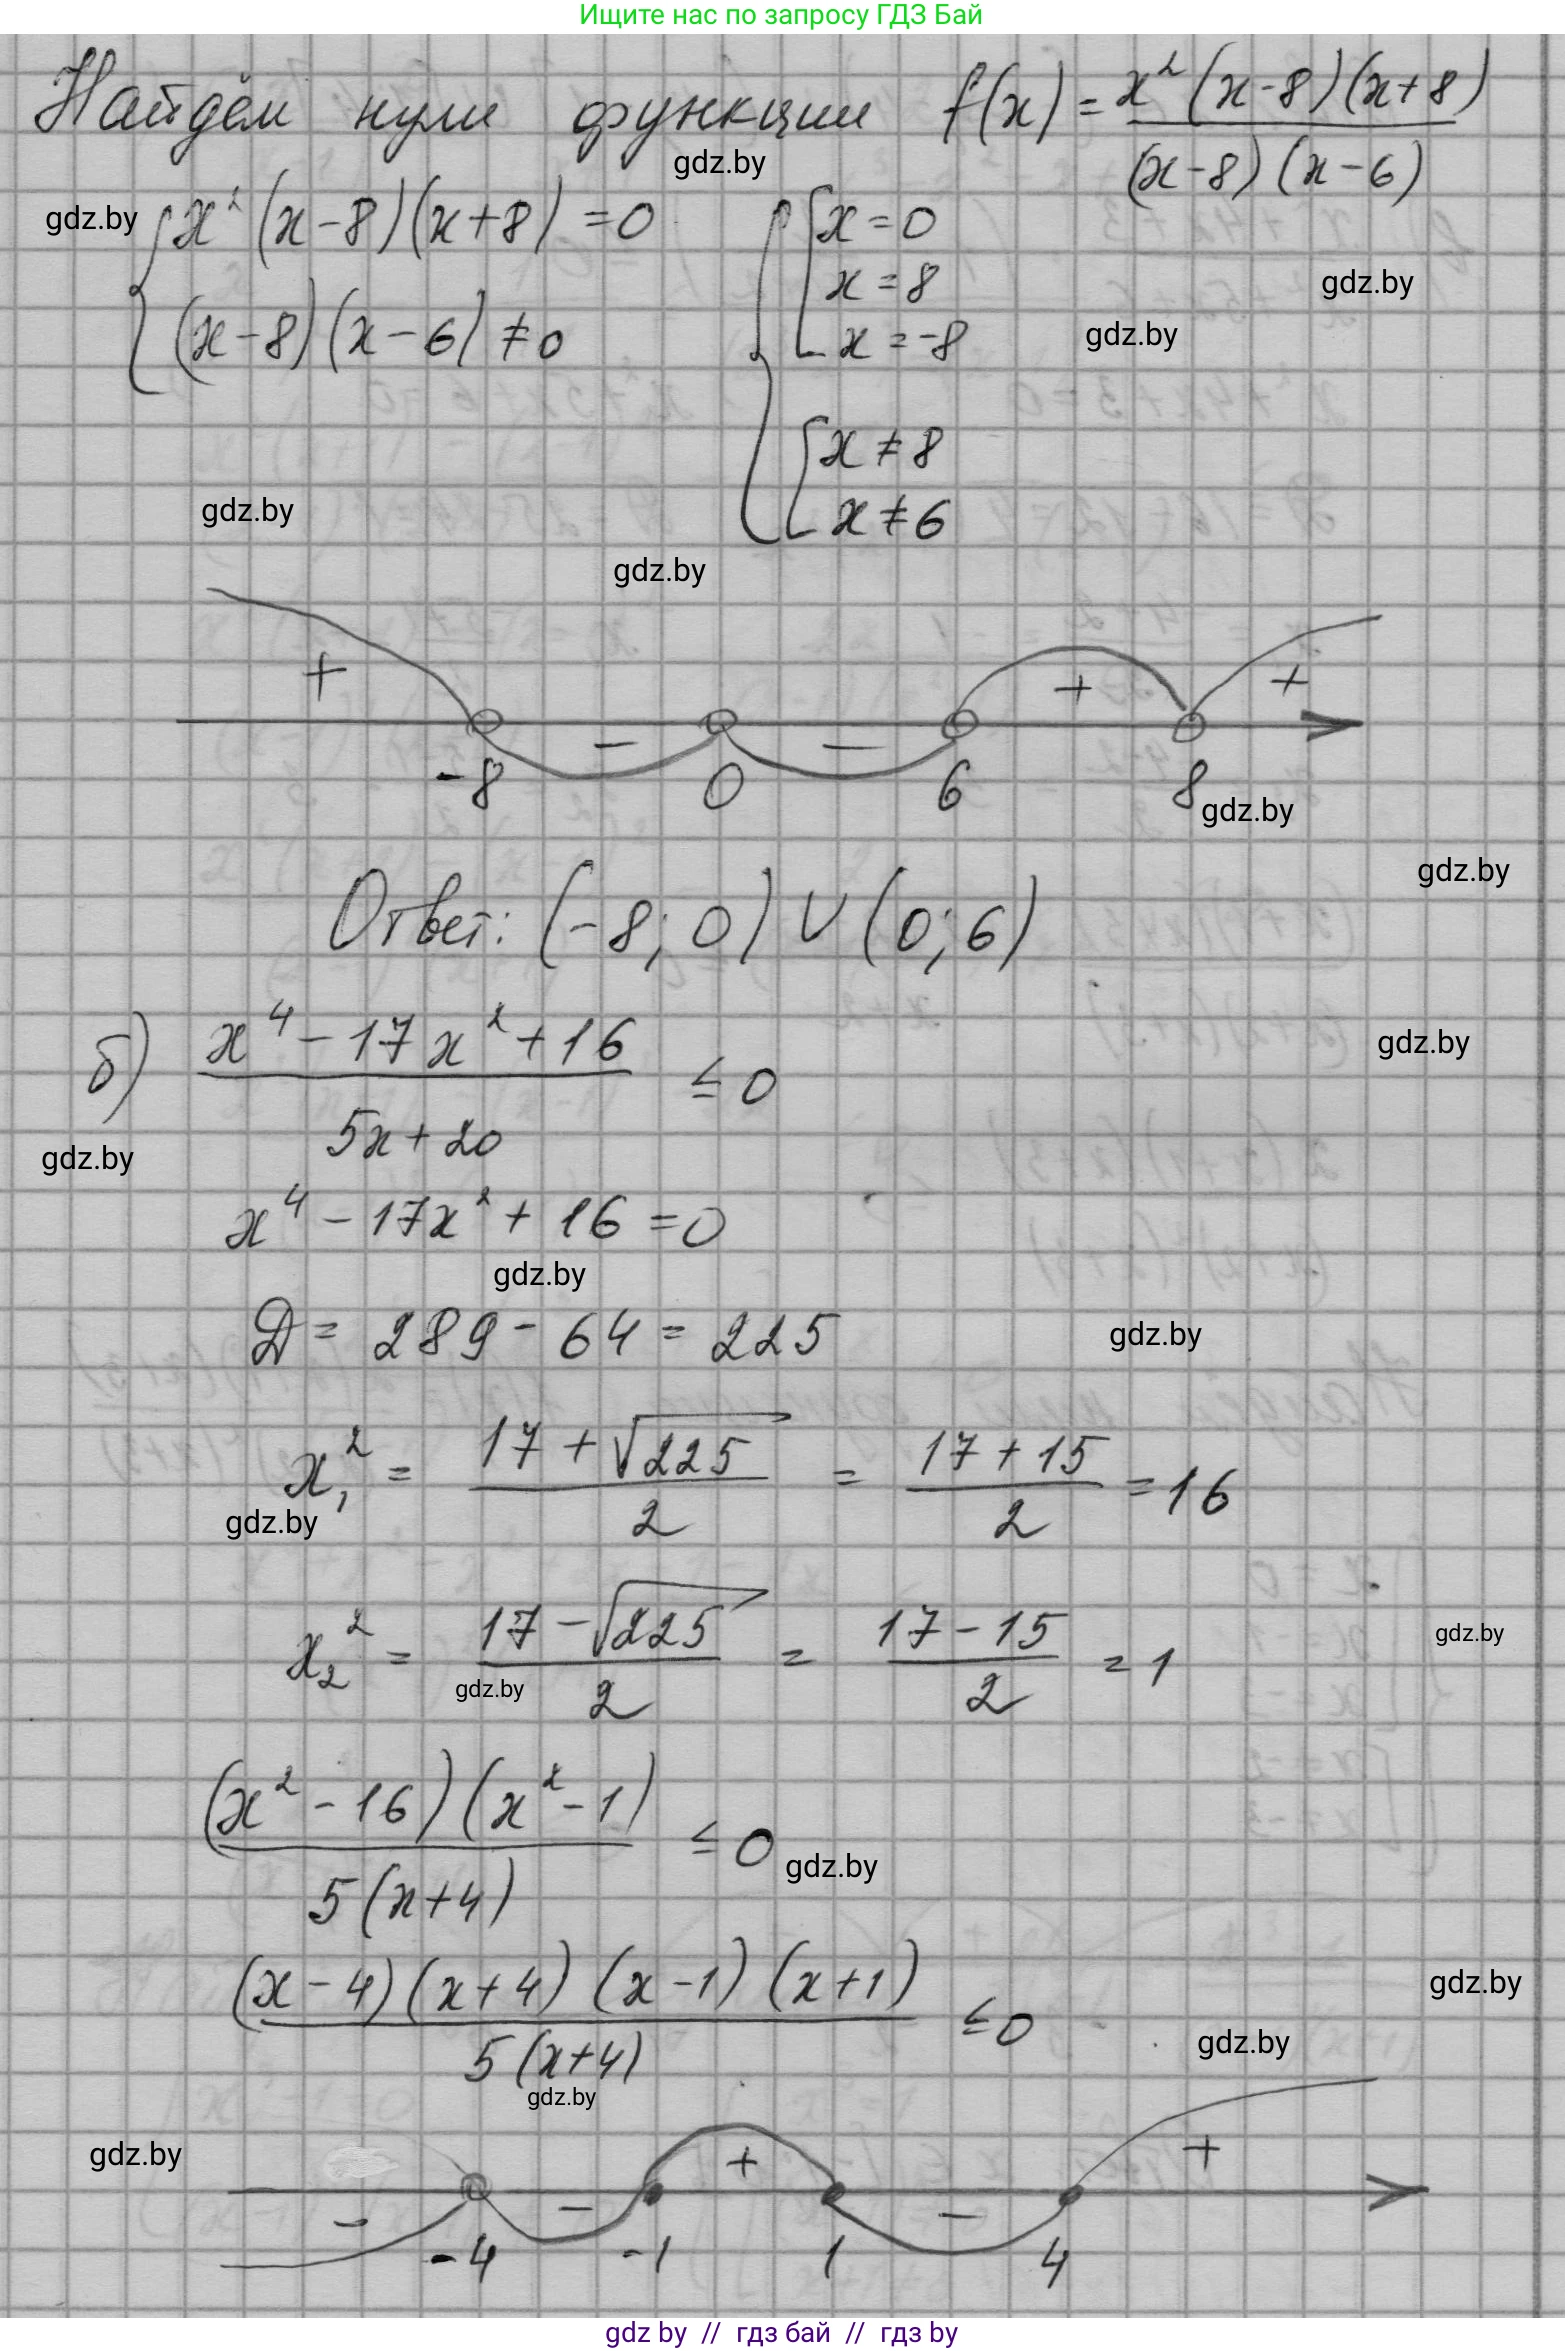 Ищите нас по запросу ГДЗ Бай
Найдём нули функции f(x) = x²(x-8)(x+8) / (x-8)(x-6)
gdz.by
gdz.by
x²(x-8)(x+8) = 0
(x-8)(x-6) ≠ 0
x = 0
x = 8
x = -8
gdz.by
gdz.by
x ≠ 8
x ≠ 6
gdz.by
gdz.by
+ - - + +
-8 0 6 8
gdz.by
gdz.by
Ответ: (-8; 0) ∪ (0; 6)
б) x⁴ - 17x² + 16 / 5x + 20 ≤ 0
gdz.by
gdz.by
x⁴ - 17x² + 16 = 0
gdz.by
D = 289 - 64 = 225
gdz.by
x₁² = 17 + √225 / 2 = 17 + 15 / 2 = 16
gdz.by
x₂² = 17 - √225 / 2 = 17 - 15 / 2 = 1
gdz.by
gdz.by
(x² - 16)(x² - 1) / 5(x+4) ≤ 0
gdz.by
(x-4)(x+4)(x-1)(x+1) / 5(x+4) ≤ 0
gdz.by
gdz.by
gdz.by
gdz.by
- - + - +
-4 -1 1 4
gdz by // гдз бай // гдз by